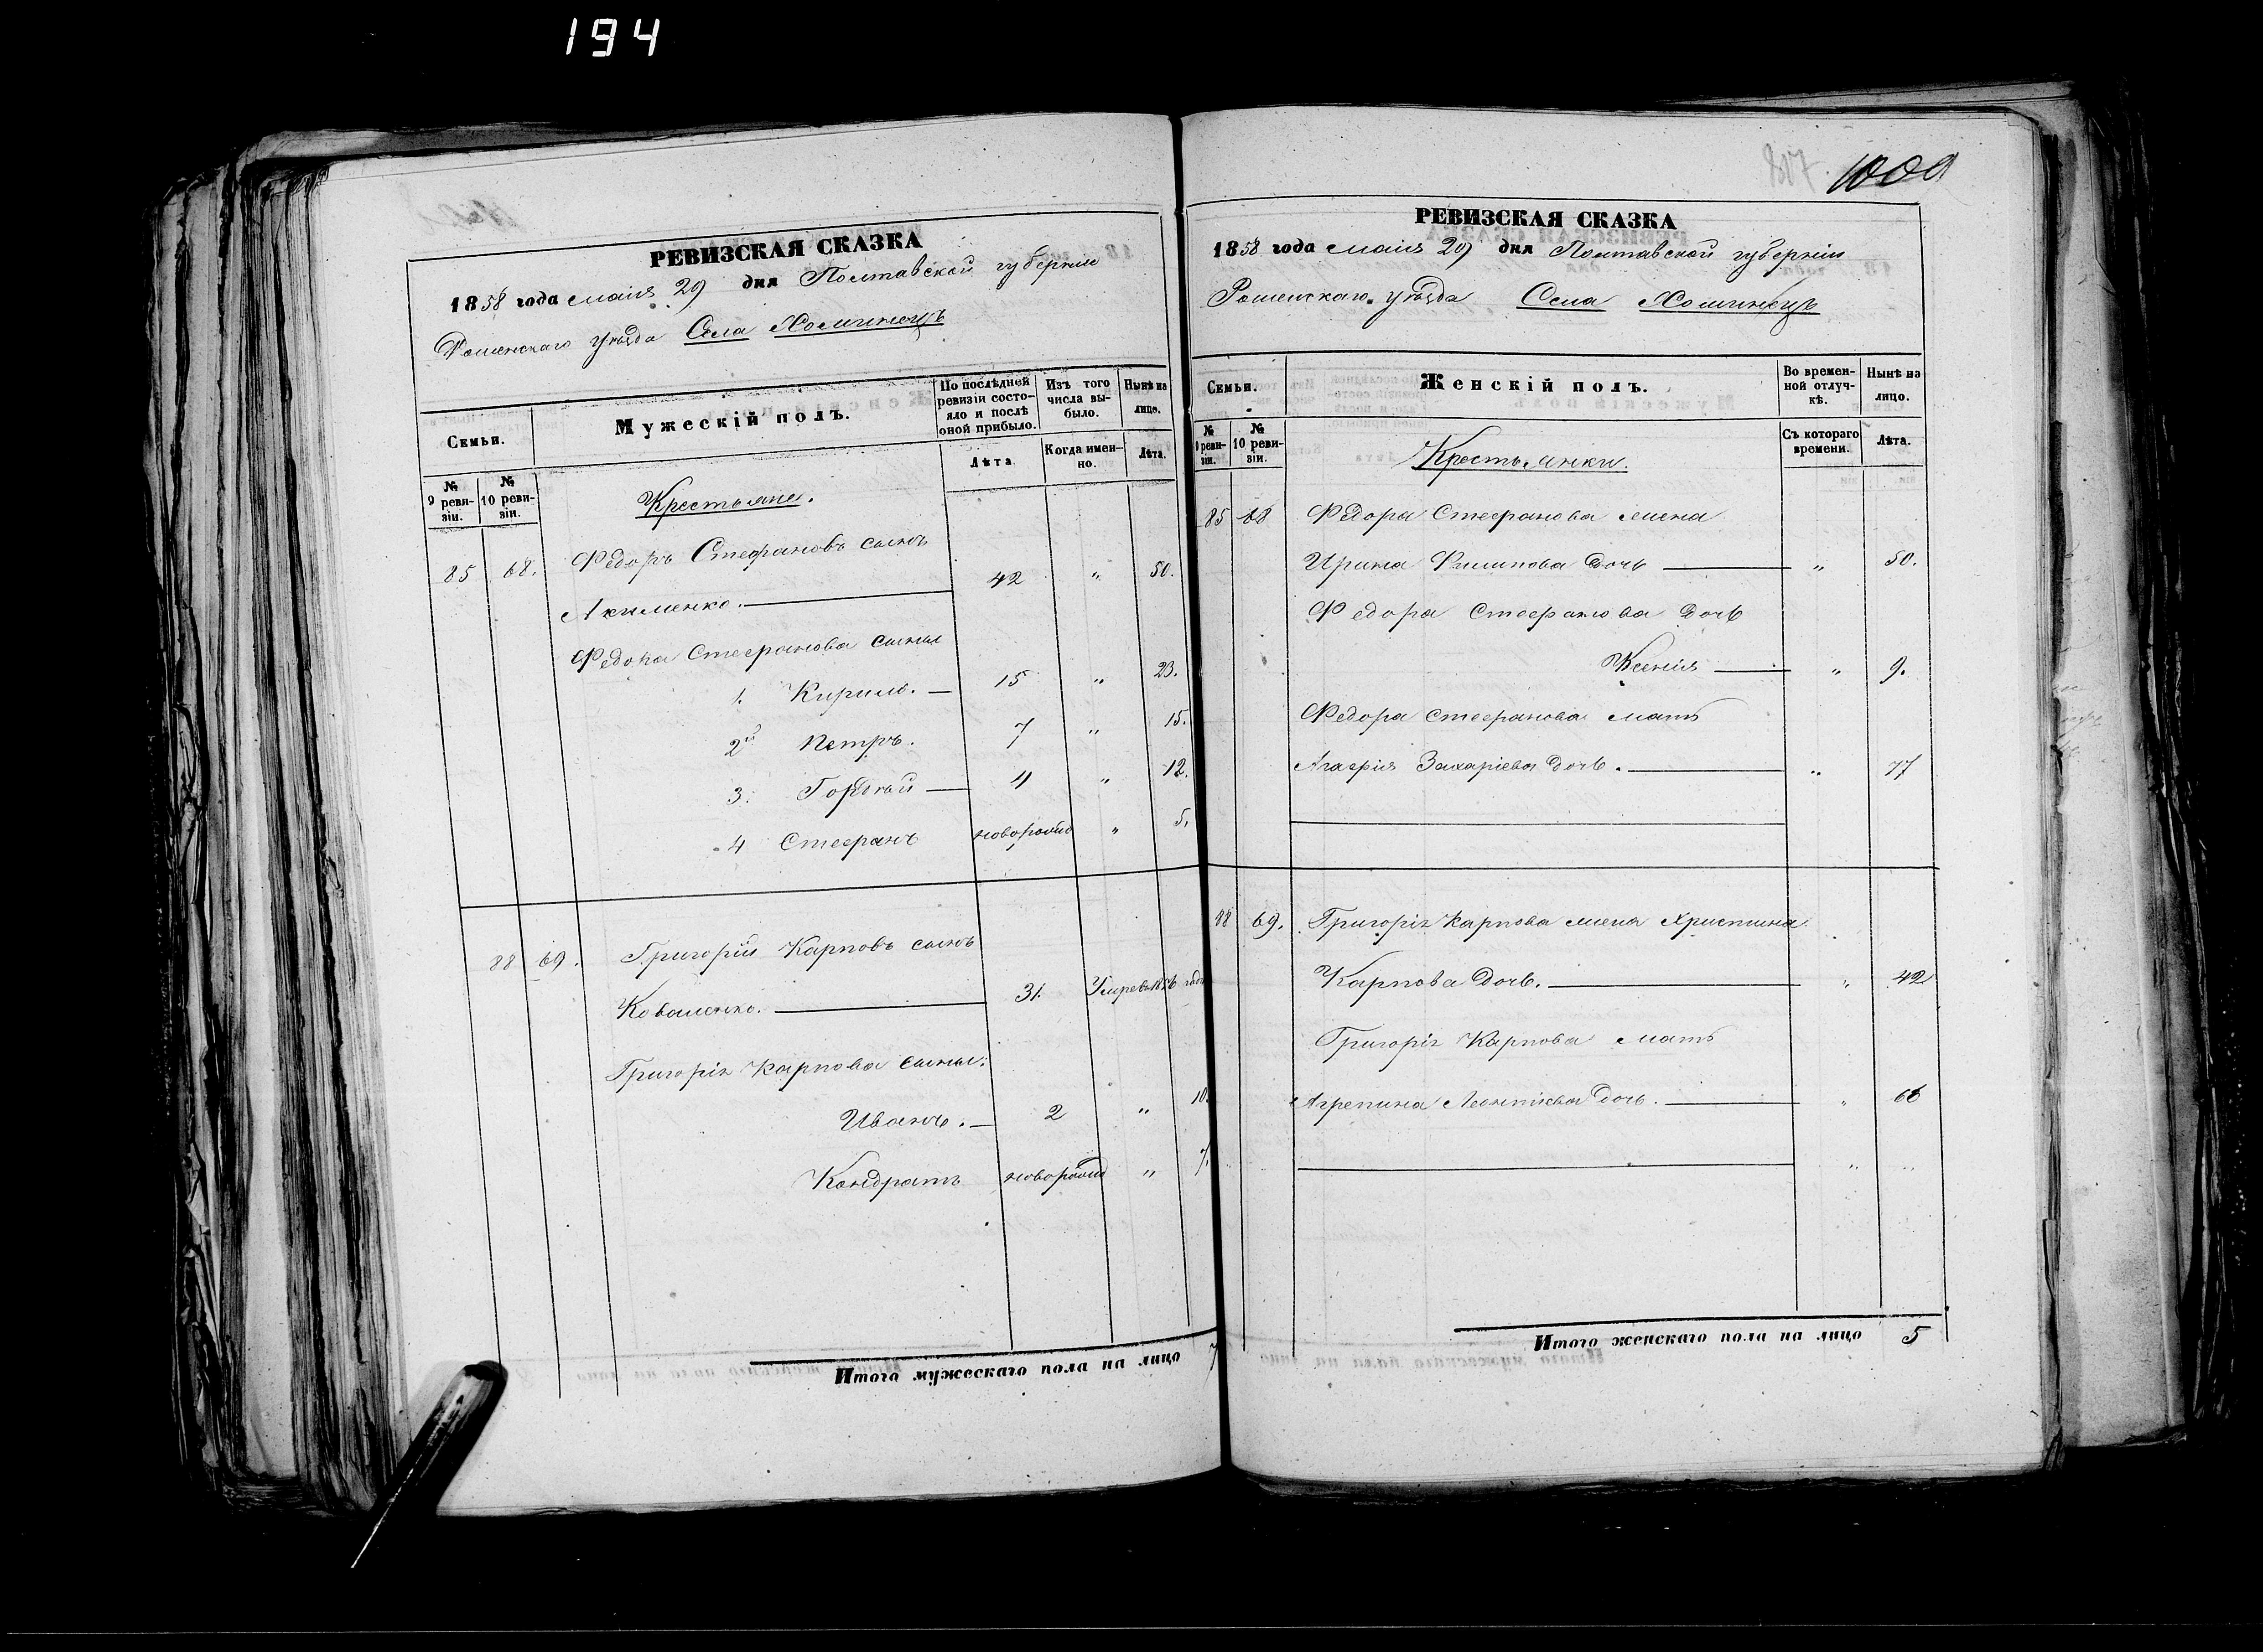 194
РЕВИЗСКАЯ СКАЗКА
1858 года маія 29 дня Полтавской губерніи
Роменскаго уѣзда Села Хоминецъ
Семьи.
Мужескій полъ.
По послѣдней ревизіи состояло и послѣ оной прибыло.
Изъ того числа выбыло.
Нынѣ на лицо.
№ 9 ревизіи.
№ 10 ревизіи.
Лѣта
Когда именно.
Лѣта.
Крестьяне.
85 68. Федоръ Стефановъ сынъ
Акименко. 42 " 50.
Федора Стефанова сыны
1. Кирилъ. 15 " 23.
2й Петръ. 7 " 15.
3. Гордѣй 4 " 12.
4 Стефанъ новорожд " 5.
88 69. Григорій Карповъ сынъ
Коваленко. 31. Умре въ 1856 годѣ
Григорія Карпова сыны:
Иванъ. 2 " 10.
Кондратъ новорожд " 7.
Итого мужескаго пола на лицо 7
1009
РЕВИЗСКАЯ СКАЗКА
1858 года маія 29 дня Полтавской губерніи
Роменскаго уѣзда Села Хоминецъ
Семьи.
Женскій полъ.
Во временной отлучкѣ.
Нынѣ на лицо.
№ 9 ревизіи.
№ 10 ревизіи.
Съ котораго времени.
Лѣта.
Крестьянки.
85 68 Федора Стефанова жена
Ирина Филипова дочь " 50.
Федора Стефанова дочь
Ксенія " 9.
Федора Стефанова мать
Агафія Захаріева дочь. " 77
88 69. Григорія Карпова жена Христина
Карпова дочь. " 42
Григорія Карпова мать
Агрепина Леонтіева дочь. " 66
" "
Итого женскаго пола на лицо 5